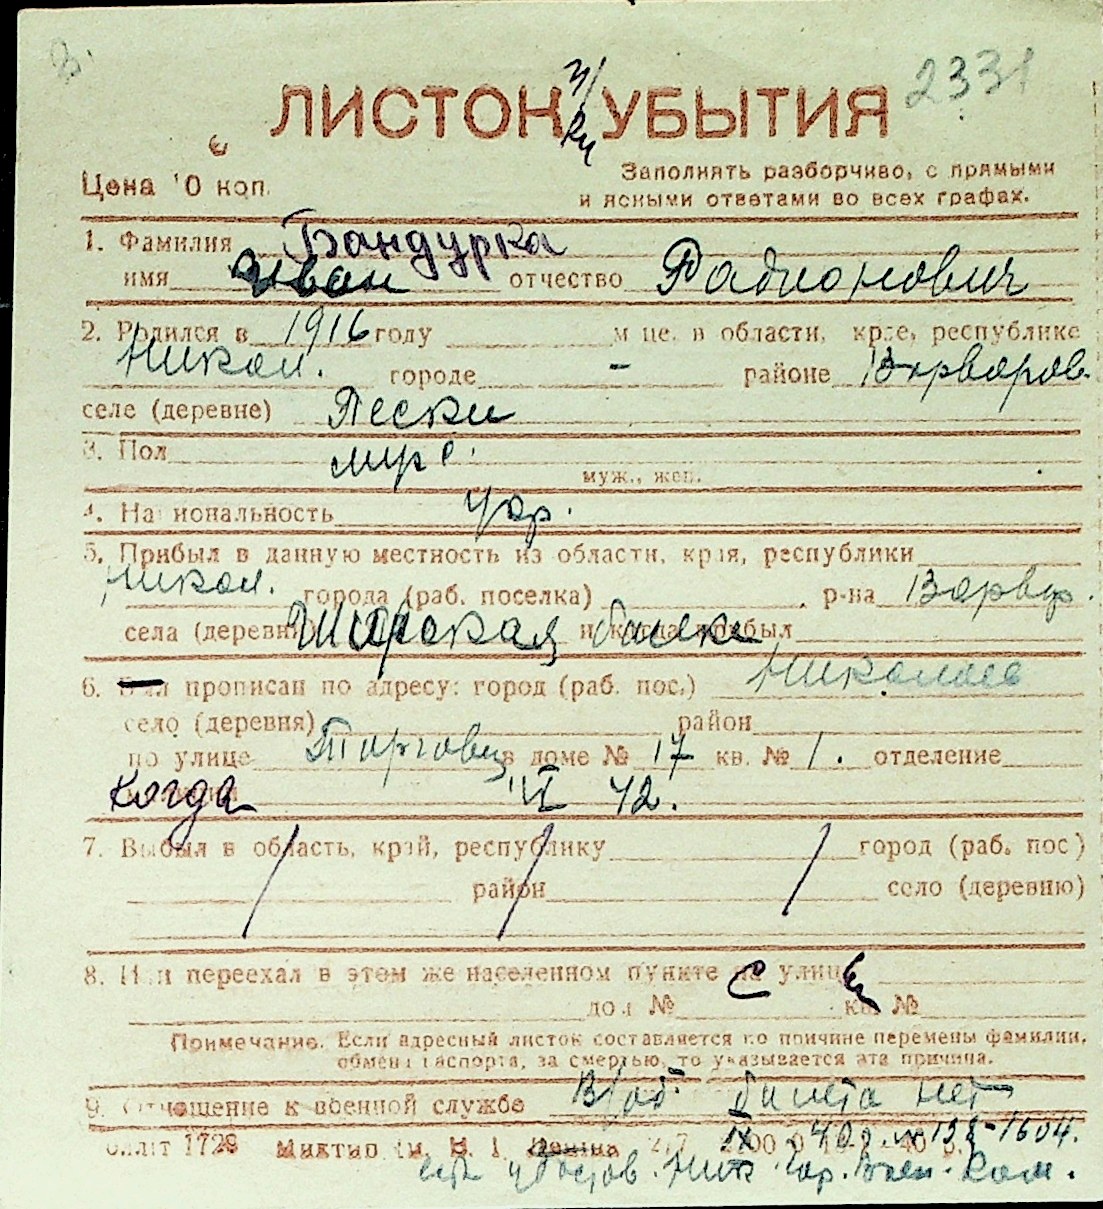 2331
ЛИСТОК УБЫТИЯ
Цена 10 коп.
Заполнять разборчиво, с прямыми
и ясными ответами во всех графах.
1. Фамилия Бандурка
имя Иван отчество Радионович
2. Родился в 1916 году м-це, в области, крае, республике
Никол. городе - районе Варваров.
селе (деревне) Пески
3. Пол муж.
муж., жен.
4. Национальность Укр.
5. Прибыл в данную местность из области, края, республики
Никол. города (раб. поселка) р-на Варвар.
села (деревни) Широкая балка и когда прибыл
6. прописан по адресу: город (раб. пос.) Николаев
село (деревня) район
по улице Торговая в доме № 17 кв. № 1. отделение
Когда VI 42.
7. Выбыл в область, край, республику город (раб. пос.)
район село (деревню)
8. Или переехал в этом же населенном пункте на улицу
дом № кв. №
Примечание. Если адресный листок составляется по причине перемены фамилии,
обмена паспорта, за смертью, то указывается эта причина.
9. Отношение к военной службе В/об. билета нет
1728 им. В. І. Леніна IX 40 г. № 138-1604.
удостов. Ник. Гор. Воен. Ком.